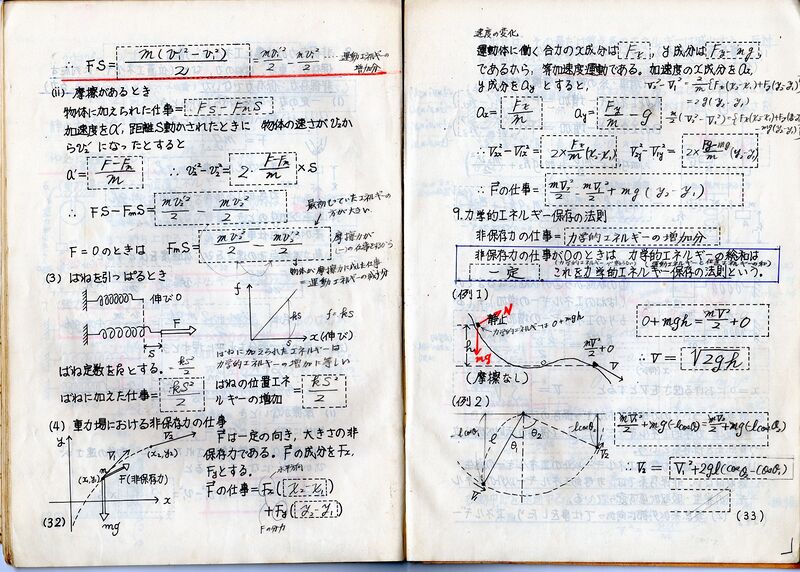 ∴ FS = m(v₂'² - v₁'²)/2 = mv₂'²/2 - mv₁'²/2 ……運動エネルギーの増加分
(ii) 摩擦があるとき
物体に加えられた仕事 = FS - FmS
加速度をα', 距離S動かされたときに 物体の速さがv₂から
v₂'になったとすると
α' = (F-Fm)/m ∴ v₂'²-v₂² = 2・(F-Fm)/m × S
∴ FS-FmS = mv₂'²/2 - mv₂²/2
最初もっていたエネルギーの方が大きい
F = 0のときは FmS = mv₂²/2 - mv₂'²/2
物体が摩擦力に成した仕事
= 運動エネルギーの減少分
(3) ばねを引っぱるとき
伸び 0
F
S
f
kS
f = kS
x (伸び)
ばねに加えられたエネルギーは
力学的エネルギーの増加に等しい
ばね定数をkとする。 kS²/2
ばねに加えた仕事 = kS²/2 ばねの位置エネルギーの増加 = kS²/2
(4) 重力場における非保存力の仕事
y
V₂
V₁
(x₂, y₂)
(x₁, y₁)
m
F (非保存力)
mg
x
F⃗は一定の向き, 大きさの非
保存力である。F⃗の成分をFx,
Fyとする。
水平方向
F⃗の仕事 = Fx(x₂-x₁)
+Fy(y₂-y₁)
Fの分力
(32)
速度の変化
運動体に働く合力のx成分は Fx, y成分は Fy-mg
であるから, 等加速度運動である。加速度のx成分をax,
y成分をay とすると,
ax = Fx/m ay = Fy/m - g
∴ V₂x²-V₁x² = 2×Fx/m(x₂-x₁) V₂y²-V₁y² = 2×(Fy-mg)/m(y₂-y₁)
∴ F⃗の仕事 = mV₂²/2 - mV₁²/2 + mg(y₂-y₁)
9. 力学的エネルギー保存の法則
非保存力の仕事 = 力学的エネルギーの増加分
非保存力の仕事が0のときは 力学的エネルギーの総和は
一定 これを力学的エネルギー保存の法則という。
(例1)
N
静止
力学的エネルギーは 0+mgh
h
mg
mV²/2+0
V
(摩擦なし)
0+mgh = mV²/2+0
∴ V = √2gh
(例2)
lcosθ₁
l
θ₁
θ₂
lcosθ₂
V₂
V₁
mV₁²/2+mg(-lcosθ₁)=mV₂²/2+mg(-lcosθ₂)
∴ V₂ = √V₁²+2gl(cosθ₂-cosθ₁)
(33)